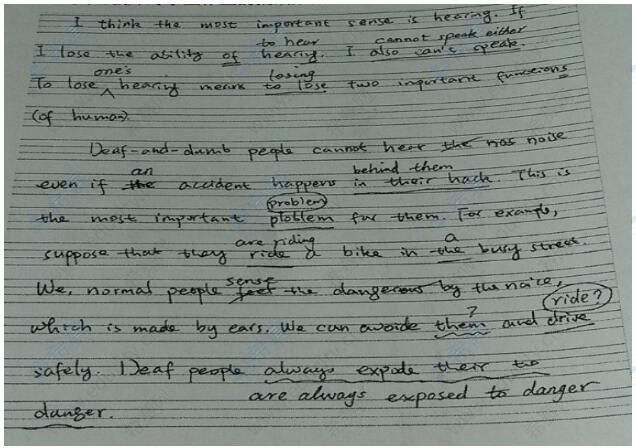 I think the most important sense is hearing. If
to hear cannot speak either
I lose the ability of hearing. I also can't speak.
one's losing
To lose hearing means to lose two inportant functions
(of human).
Deaf-and-dumb people cannot hear the nos noise
an behind them
even if the accident happens in their back. This is
problem
the most important ploblem for them. For example,
are riding a
suppose that they ride a bike in the busy street.
sense
We, normal people feel the dangerous by the noice,
? ride?
which is made by ears. We can avoide them and drive
safely. Deaf people always expode their to
are always exposed to danger
danger.